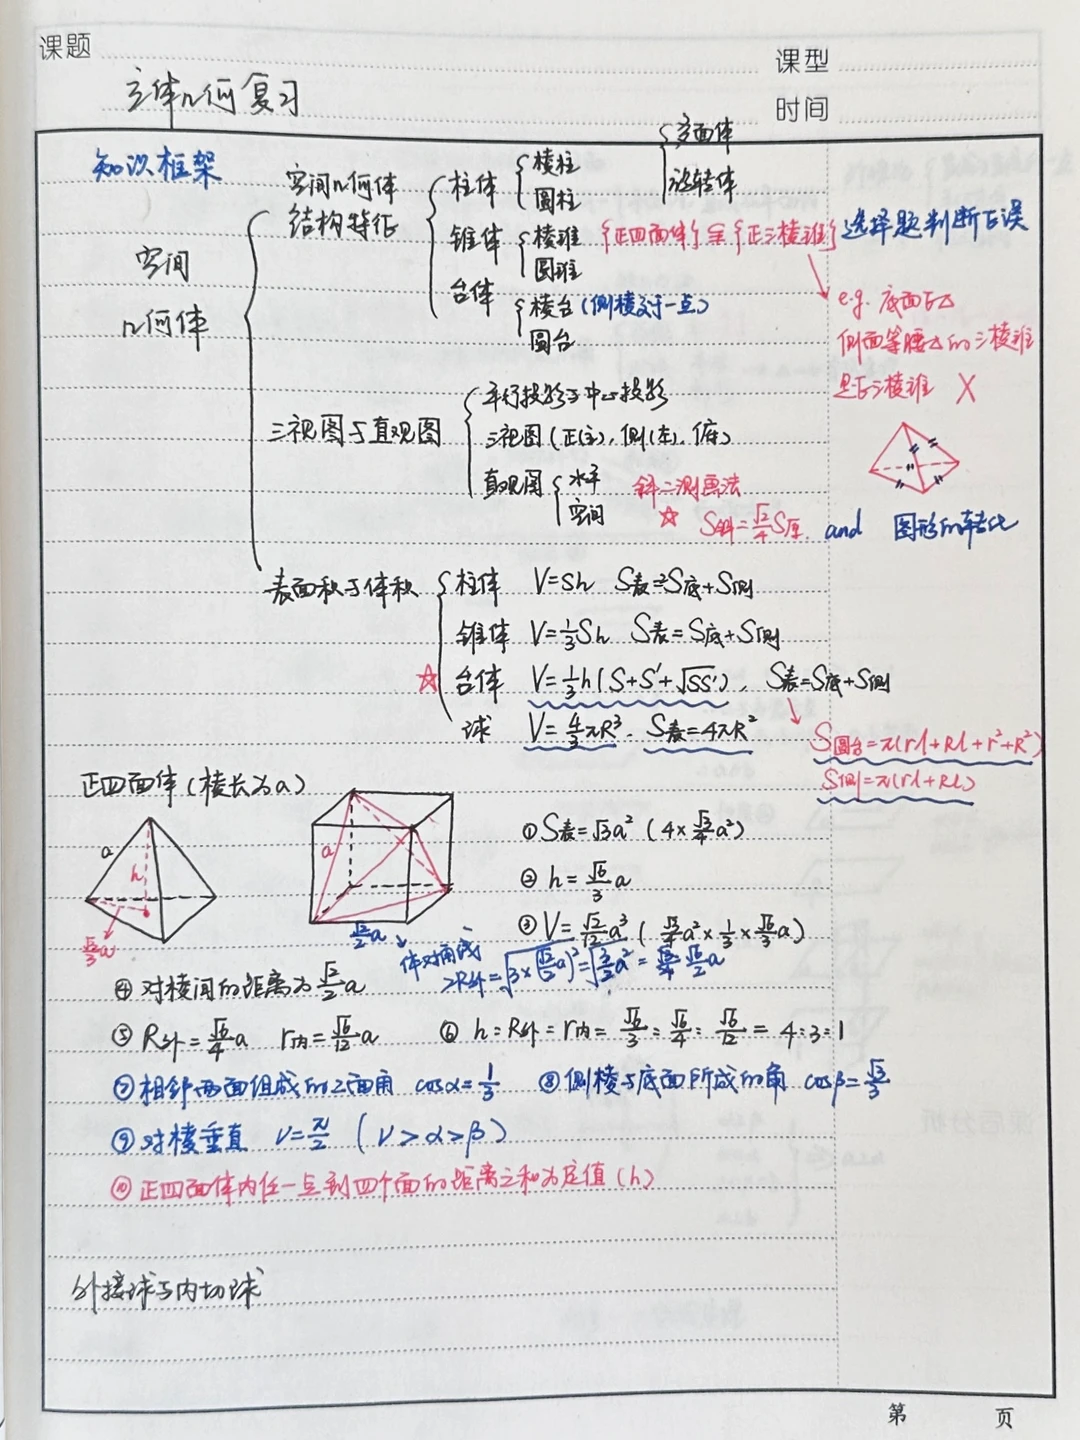 课题
课型
立体几何复习
时间
{多面体
旋转体
知识框架
空间几何体
结构特征
柱体 {棱柱
圆柱
锥体 {棱锥 {正四面体} ⫋ {正三棱锥} 选择题判断正误
圆锥
空间
几何体
台体 {棱台 (侧棱交于一点)
圆台
e.g. 底面正△
侧面等腰△的三棱锥
是正三棱锥 ✗
三视图与直观图
平行投影与中心投影
三视图(正(主),侧(左),俯)
直观图 {水平
空间
斜二测画法
☆ S斜=√2/4 S原. and 图形的转化
表面积与体积
柱体 V=Sh S表=S底+S侧
锥体 V=1/3Sh S表=S底+S侧
☆ 台体 V=1/3h(S+S'+√SS'), S表=S底+S侧
球 V=4/3πR³. S表=4πR²
S圆台=π(rl+Rl+r²+R²)
S侧=π(rl+Rl)
正四面体(棱长为a)
a
h
√3/3a
a
√2/2a
体对角线
① S表=√3a² (4×√3/4a²)
② h=√6/3a
③ V=√2/12a³ (√3/4a²×1/3×√6/3a)
2R外=√3×(√2/2a)²=√3/2a²= √6/2a
④ 对棱间的距离为√2/2a
⑤ R外=√6/4a r内=√6/12a ⑥ h:R外:r内=√6/3:√6/4:√6/12=4:3:1
⑦ 相邻两面组成的二面角 cosα=1/3 ⑧ 侧棱与底面所成的角 cosβ=√3/3
⑨ 对棱垂直 γ=π/2 (γ>α>β)
⑩ 正四面体内任一点到四个面的距离之和为定值(h)
外接球与内切球
第 页